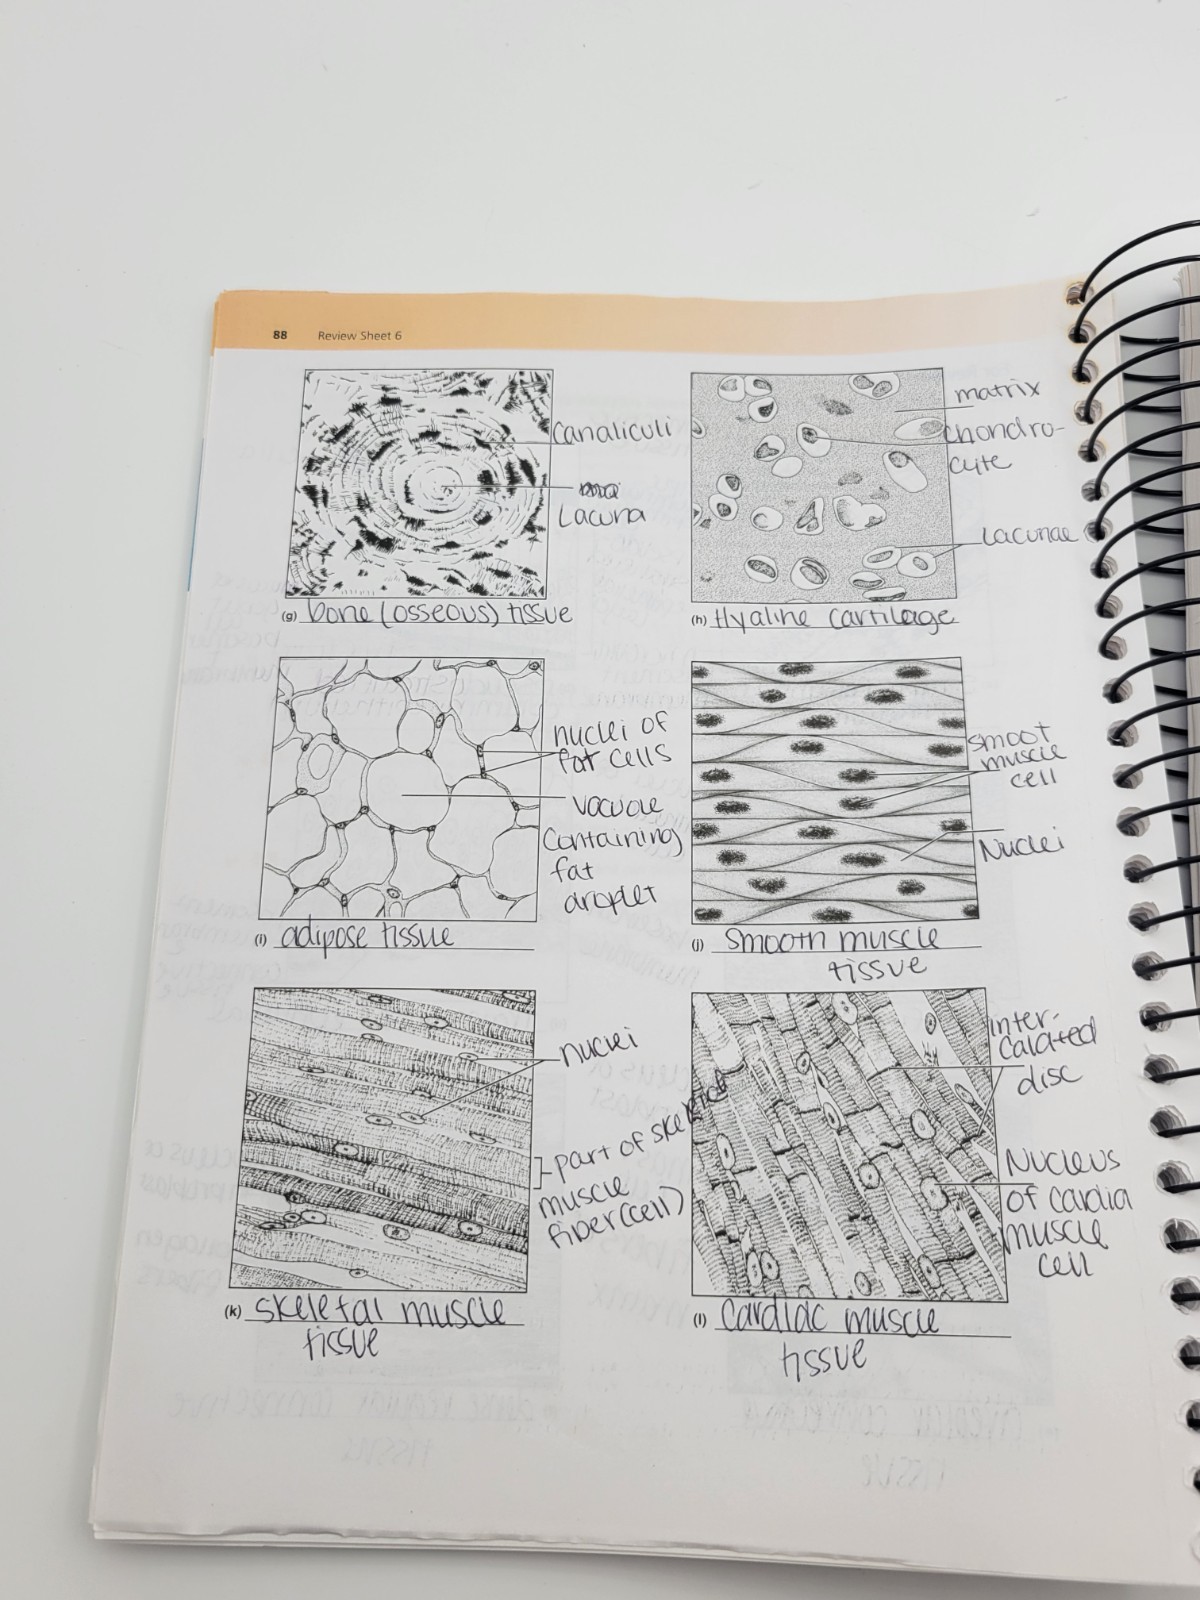 88 Review Sheet 6
canaliculi
Lacuna
(g) bone (osseous) tissue
matrix
chondro-
cyte
Lacunae
(h) Hyaline cartilage
nuclei of
fat cells
vacuole
containing
fat
droplet
(i) adipose tissue
smoot
muscle
cell
Nuclei
(j) smooth muscle
tissue
nuclei
part of skeletal
muscle
fiber (cell)
(k) skeletal muscle
tissue
inter-
calated
disc
Nucleus
of cardia
muscle
cell
(l) cardiac muscle
tissue